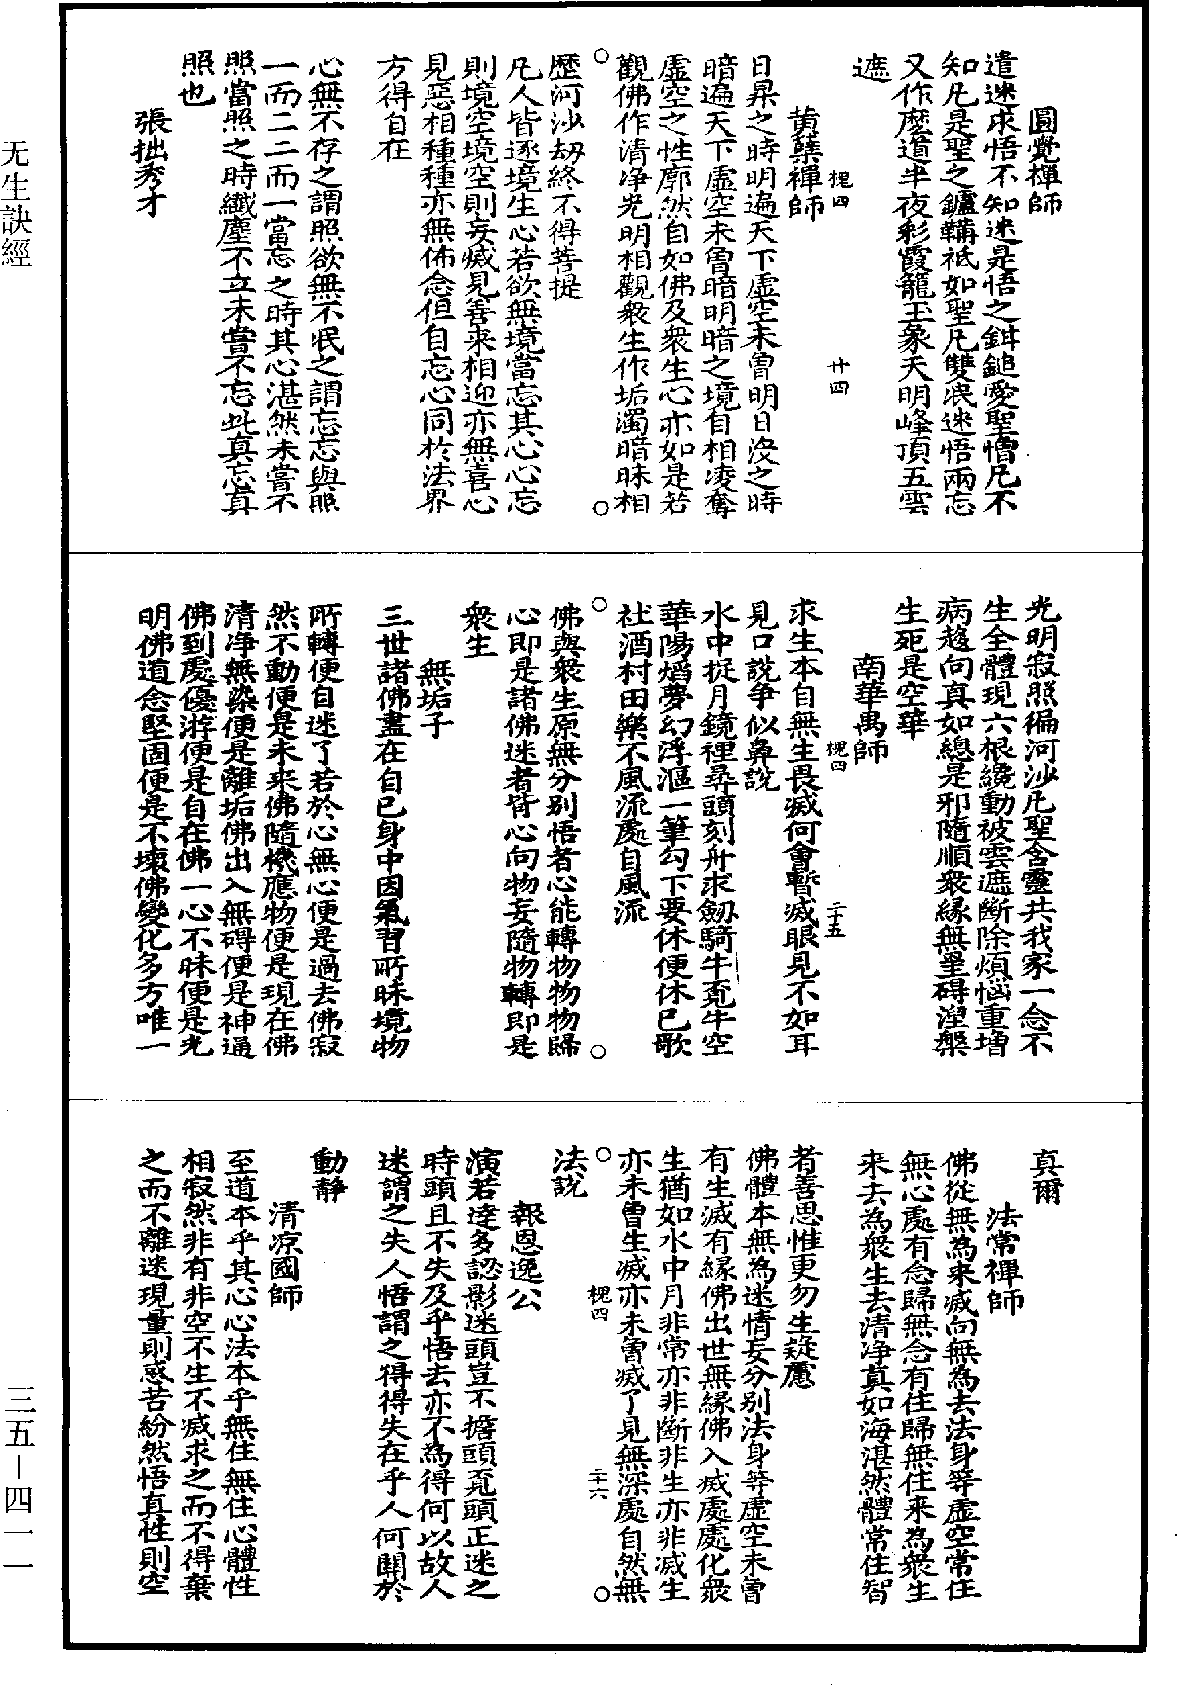 圓覺禪師
遣迷求悟不知迷是悟之鉗鎚愛聖憎凡不
知凡是聖之鑪鞴祇如聖凡雙泯迷悟兩忘
又作麼道半夜彩霞籠玉象天明峰頂五雲
遮
槐四
廿四
黃蘗禪師
日昇之時明遍天下虛空未曾明日沒之時
暗遍天下虛空未曾暗明暗之境自相凌奪
虛空之性廓然自如佛及衆生心亦如是若
觀佛作清净光明相觀衆生作垢濁暗昧相
歷河沙劫終不得菩提
凡人皆逐境生心若欲無境當忘其心心忘
則境空境空則妄滅見善來相迎亦無喜心
見惡相種種亦無怖念但自忘心同於法界
方得自在
心無不存之謂照欲無不泯之謂忘忘與照
一而二二而一當忘之時其心湛然未嘗不
照當照之時纖塵不立未嘗不忘此真忘真
照也
張拙秀才
光明寂照徧河沙凡聖含靈共我家一念不
生全體現六根纔動被雲遮斷除煩惱重增
病趨向真如總是邪隨順衆緣無罣碍湼槃
生死是空華
南華禺師
槐四
二十五
求生本自無生畏滅何會暫滅眼見不如耳
見口說争似鼻說
水中捉月鏡裡尋頭刻舟求劔騎牛覔牛空
華陽熖夢幻浮漚一筆勾下要休便休巴歌
社酒村田樂不風流處自風流
佛與衆生原無分别悟者心能轉物物物歸
心即是諸佛迷者皆心向物妄隨物轉即是
衆生
無垢子
三世諸佛盡在自己身中因氣習所昧境物
所轉便自迷了若於心無心便是過去佛寂
然不動便是未来佛隨機應物便是現在佛
清净無染便是離垢佛出入無碍便是神通
佛到處優游便是自在佛一心不昧便是光
明佛道念堅固便是不壞佛變化多方唯一
真爾
法常禪師
佛從無為来滅向無為去法身等虛空常住
無心處有念歸無念有住歸無住来為衆生
来去為衆生去清净真如海湛然體常住智
者善思惟更勿生疑慮
佛體本無為迷情妄分别法身等虛空未曾
有生滅有緣佛出世無緣佛入滅處處化衆
生猶如水中月非常亦非斷非生亦非滅生
亦未曾生滅亦未曾滅了見無深處自然無
槐四
二十六
法說
報恩逸公
演若達多認影迷頭豈不擔頭覔頭正迷之
時頭且不失及乎悟去亦不為得何以故人
迷謂之失人悟謂之得得失在乎人何關於
動靜
清凉國師
至道本乎其心心法本乎無住無住心體性
相寂然非有非空不生不滅求之而不得棄
之而不離迷現量則惑苦紛然悟真性則空
无生訣經
三五－四一一